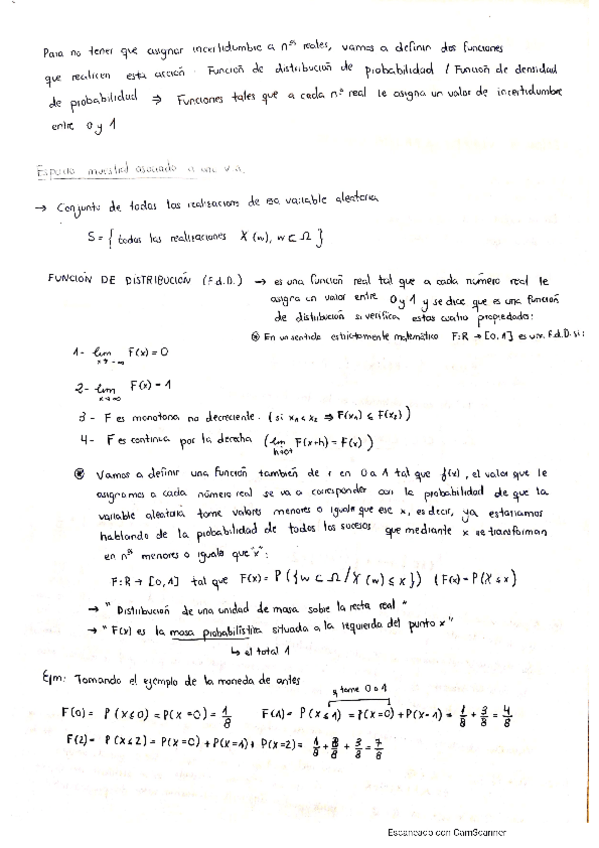 Para no tener que asignar incertidumbre a nºs reales, vamos a definir dos funciones
que realicen esta acción. Función de distribución de probabilidad / Función de densidad
de probabilidad ⇒ Funciones tales que a cada nº real le asigna un valor de incertidumbre
entre 0 y 1
Espacio muestral asociado a una v.a.
→ Conjunto de todas las realizaciones de esa variable aleatoria
S = { todas las realizaciones X(w), w ⊂ Ω }
FUNCIÓN DE DISTRIBUCIÓN (F.d.D.) → es una función real tal que a cada número real le
asigna un valor entre 0 y 1 y se dice que es una función
de distribución si verifica estas cuatro propiedades:
⊛ En un sentido estrictamente matemático F: R → [0,1] es una F.d.D. si:
1- lim x→-∞ F(x) = 0
2- lim x→∞ F(x) = 1
3- F es monotona no decreciente. (si x₁ < x₂ ⇒ F(x₁) ≤ F(x₂))
4- F es continua por la derecha (lim h→0+ F(x+h) = F(x))
⊛ Vamos a definir una función también de r en 0 a 1 tal que f(x), el valor que le
asignamos a cada número real se va a corresponder con la probabilidad de que la
variable aleatoria tome valores menores o iguales que ese x, es decir, ya estaríamos
hablando de la probabilidad de todos los sucesos que mediante x se transforman
en nºs menores o iguales que "x":
F: R → [0,1] tal que F(x) = P({w ⊂ Ω / X(w) ≤ x}) (F(x) = P(X ≤ x)
→ "Distribución de una unidad de masa sobre la recta real"
→ "F(x) es la masa probabilística situada a la izquierda del punto x"
↳ el total 1
Ejm: Tomando el ejemplo de la moneda de antes
tome 0 o 1
F(0) = P(X≤0) = P(X=0) = 1/8 F(1) = P(X≤1) = P(X=0) + P(X=1) = 1/8 + 3/8 = 4/8
F(2) = P(X≤2) = P(X=0) + P(X=1) + P(X=2) = 1/8 + 3/8 + 3/8 = 7/8
Escaneado con CamScanner